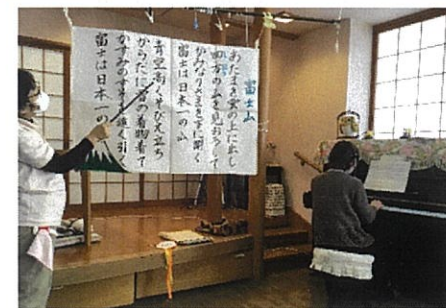 富士山
あたまを雲の上に出し
四方の山を見おろして
かみなりさまを下に聞く
富士は日本一の山
青空高くそびえ立ち
からだに雪の着物着て
かすみのすそを遠く引く
富士は日本一の